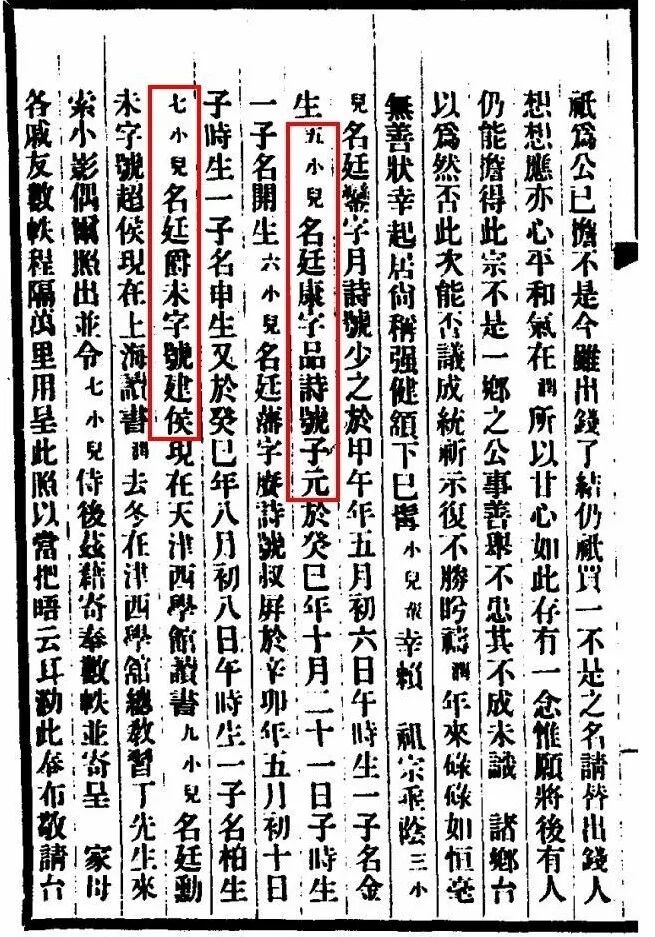 祇爲公已擔不是今雖出錢了結仍祇買一不是之名請替出錢人
想想應亦心平和氣在潤所以甘心如此存有一念惟願將後有人
仍能擔得此宗不是一鄉之公事善舉不患其不成未識 諸鄉台
以爲然否此次能否議成統祈示復不勝盼禱潤年來碌碌如恒毫
無善狀幸起居尚稱强健頷下已鬚小兒輩幸賴 祖宗垂陰三小
兒名廷鑾字月詩號少之於甲午年五月初六日午時生一子名金
生五小兒名廷康字品詩號子元於癸巳年十月二十一日子時生
一子名開生六小兒名廷藩字賡詩號叔屏於辛卯年五月初十日
子時生一子名申生又於癸巳年八月初八日午時生一子名柏生
七小兒名廷爵未字號建侯現在天津西學館讀書九小兒名廷勳
未字號超侯現在上海讀書潤去冬在津西學館總教習丁先生來
索小影偶爾照出並令七小兒侍後茲藉寄奉數帙並寄呈 家母
各戚友數帙程隔萬里用呈此照以當把晤云耳泐此奉布敬請台